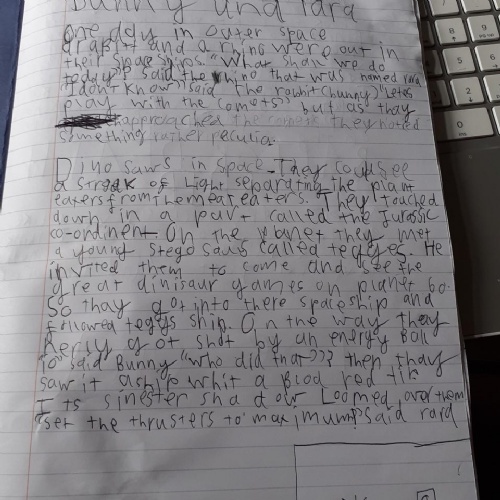 Bunny and rara
One day in outer space
a rabbit and a rhino were out in
their space ships. "What shall we do
today"? said the rhino that was named rara
"I don't know" said the rabbit (bunny) "Lets
play with the comets" but as thay
approached the comets they noted
something rather peculia.
Dino saws in space. They could see
a streak of light separating the plant
eaters from the meat eaters. They touched
down in a part called the Jurassic
co-ordinent. On the planet they met
a young stego saus called teggyes. He
invited them to come and see the
great dinisaur games on planet 60.
So thay got into there spaceship and
followed teggs ship. On the way they
nerly got shot by an energy ball
said Bunny "who did that??? then thay
saw it a ship whit a blod red
Its sinester shadow Loomed over them
"set the thrusters to maximum" said rara